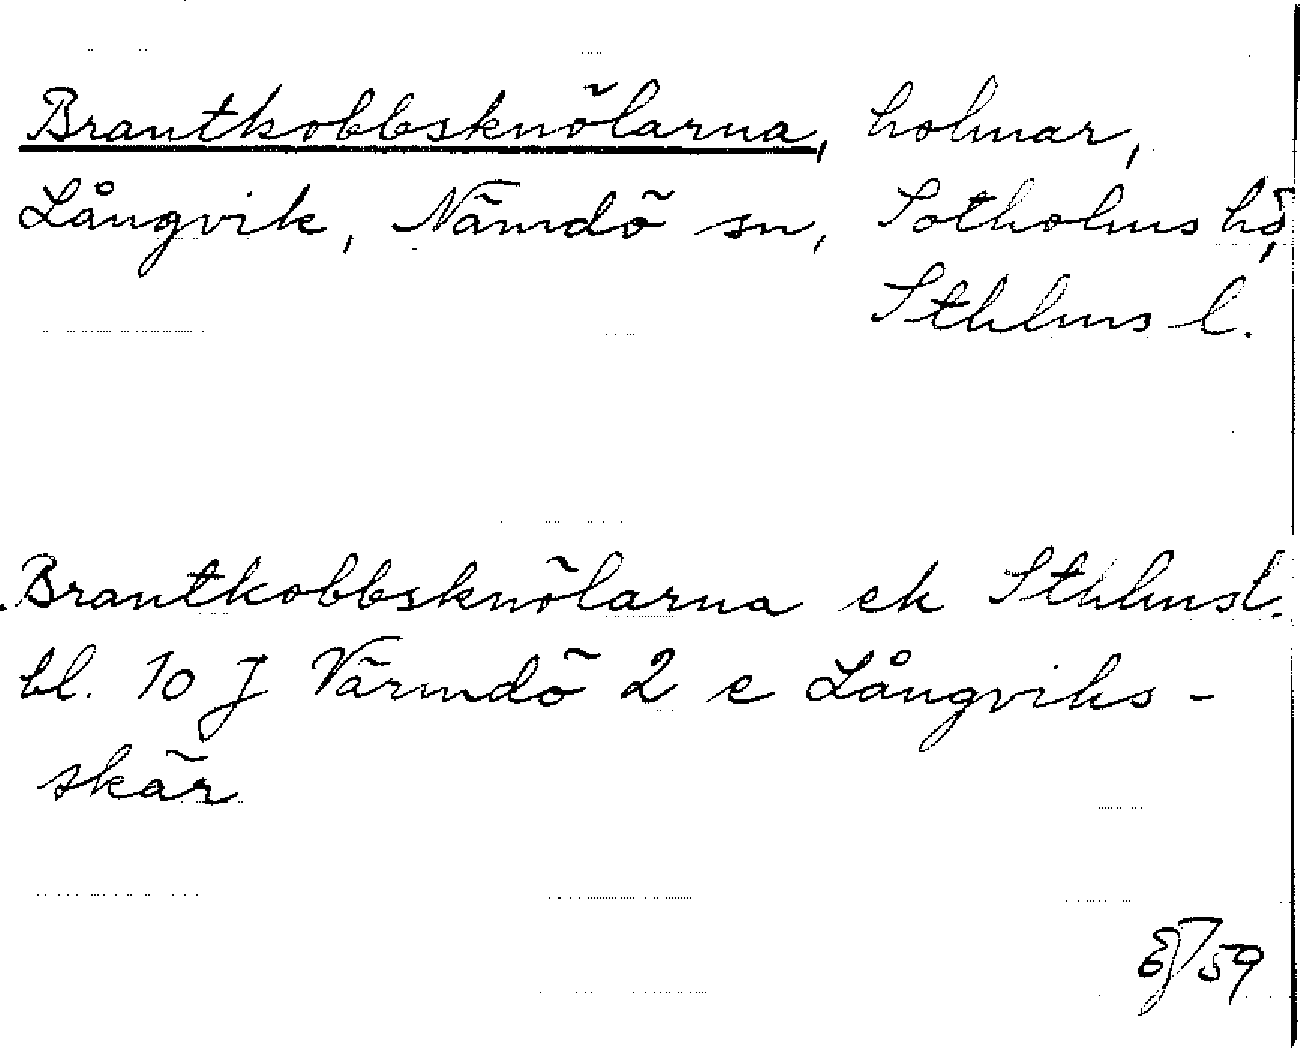 Brantkobbsknölarna, holmar,
Långvik, Nämdö sn, Sotholms hd,
Sthlms l.
Brantkobbsknölarna ek Sthlmsl.
bl. 10 J Värmdö 2 c Långviks-
skär
59